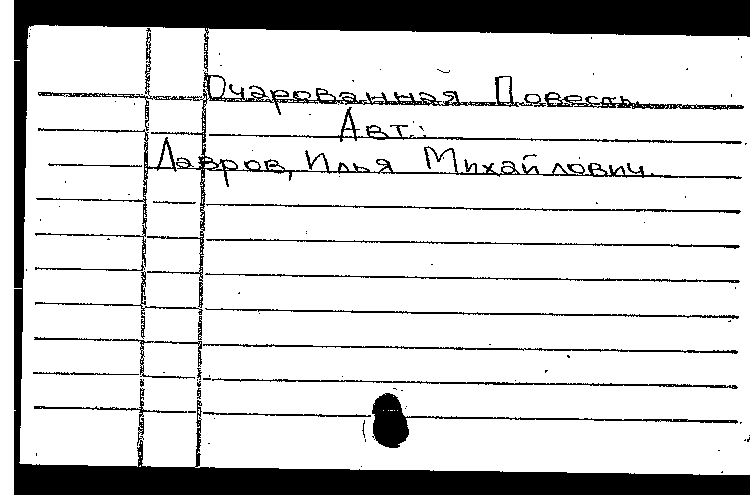 Очарованная Повесть.
Авт.:
Лавров, Илья Михайлович.